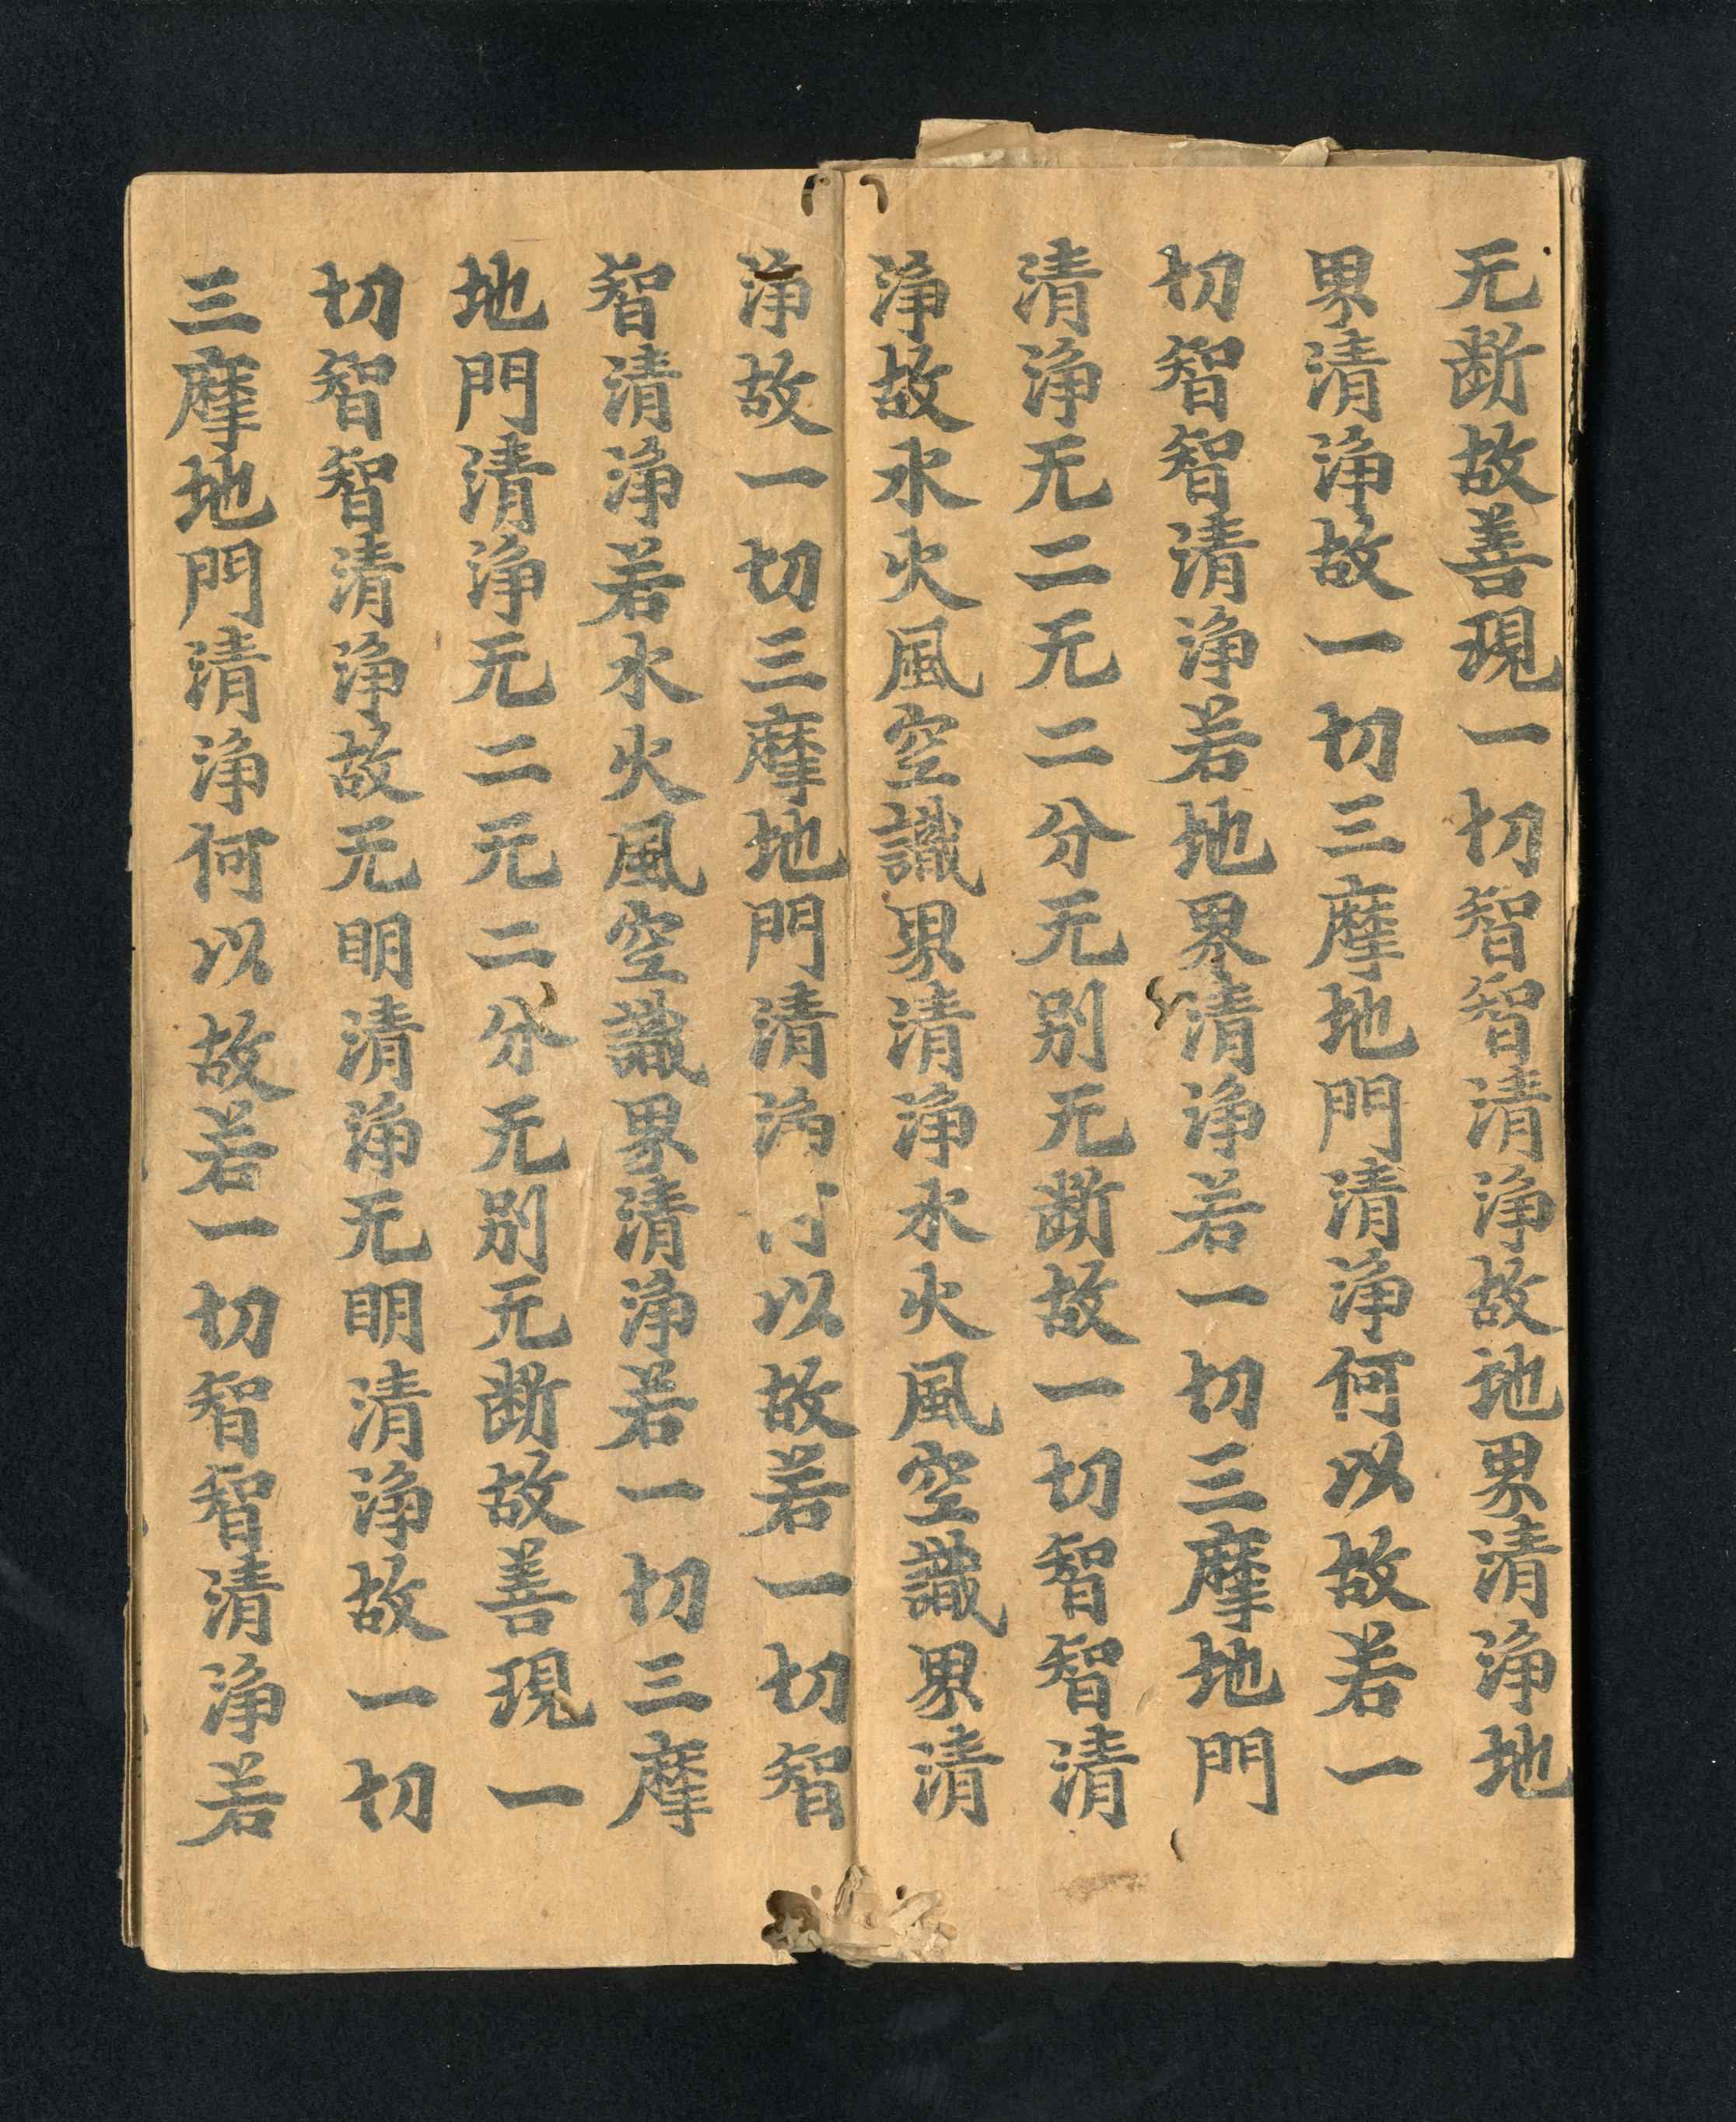 无断故善現一切智智清浄故地界清浄地
界清浄故一切三摩地門清浄何以故若一
切智智清浄若地界清浄若一切三摩地門
清浄无二无二分无別无断故一切智智清
浄故水火風空識界清浄水火風空識界清
浄故一切三摩地門清浄何以故若一切智
智清浄若水火風空識界清浄若一切三摩
地門清浄无二无二分无別无断故善現一
切智智清浄故无明清浄无明清浄故一切
三摩地門清浄何以故若一切智智清浄若